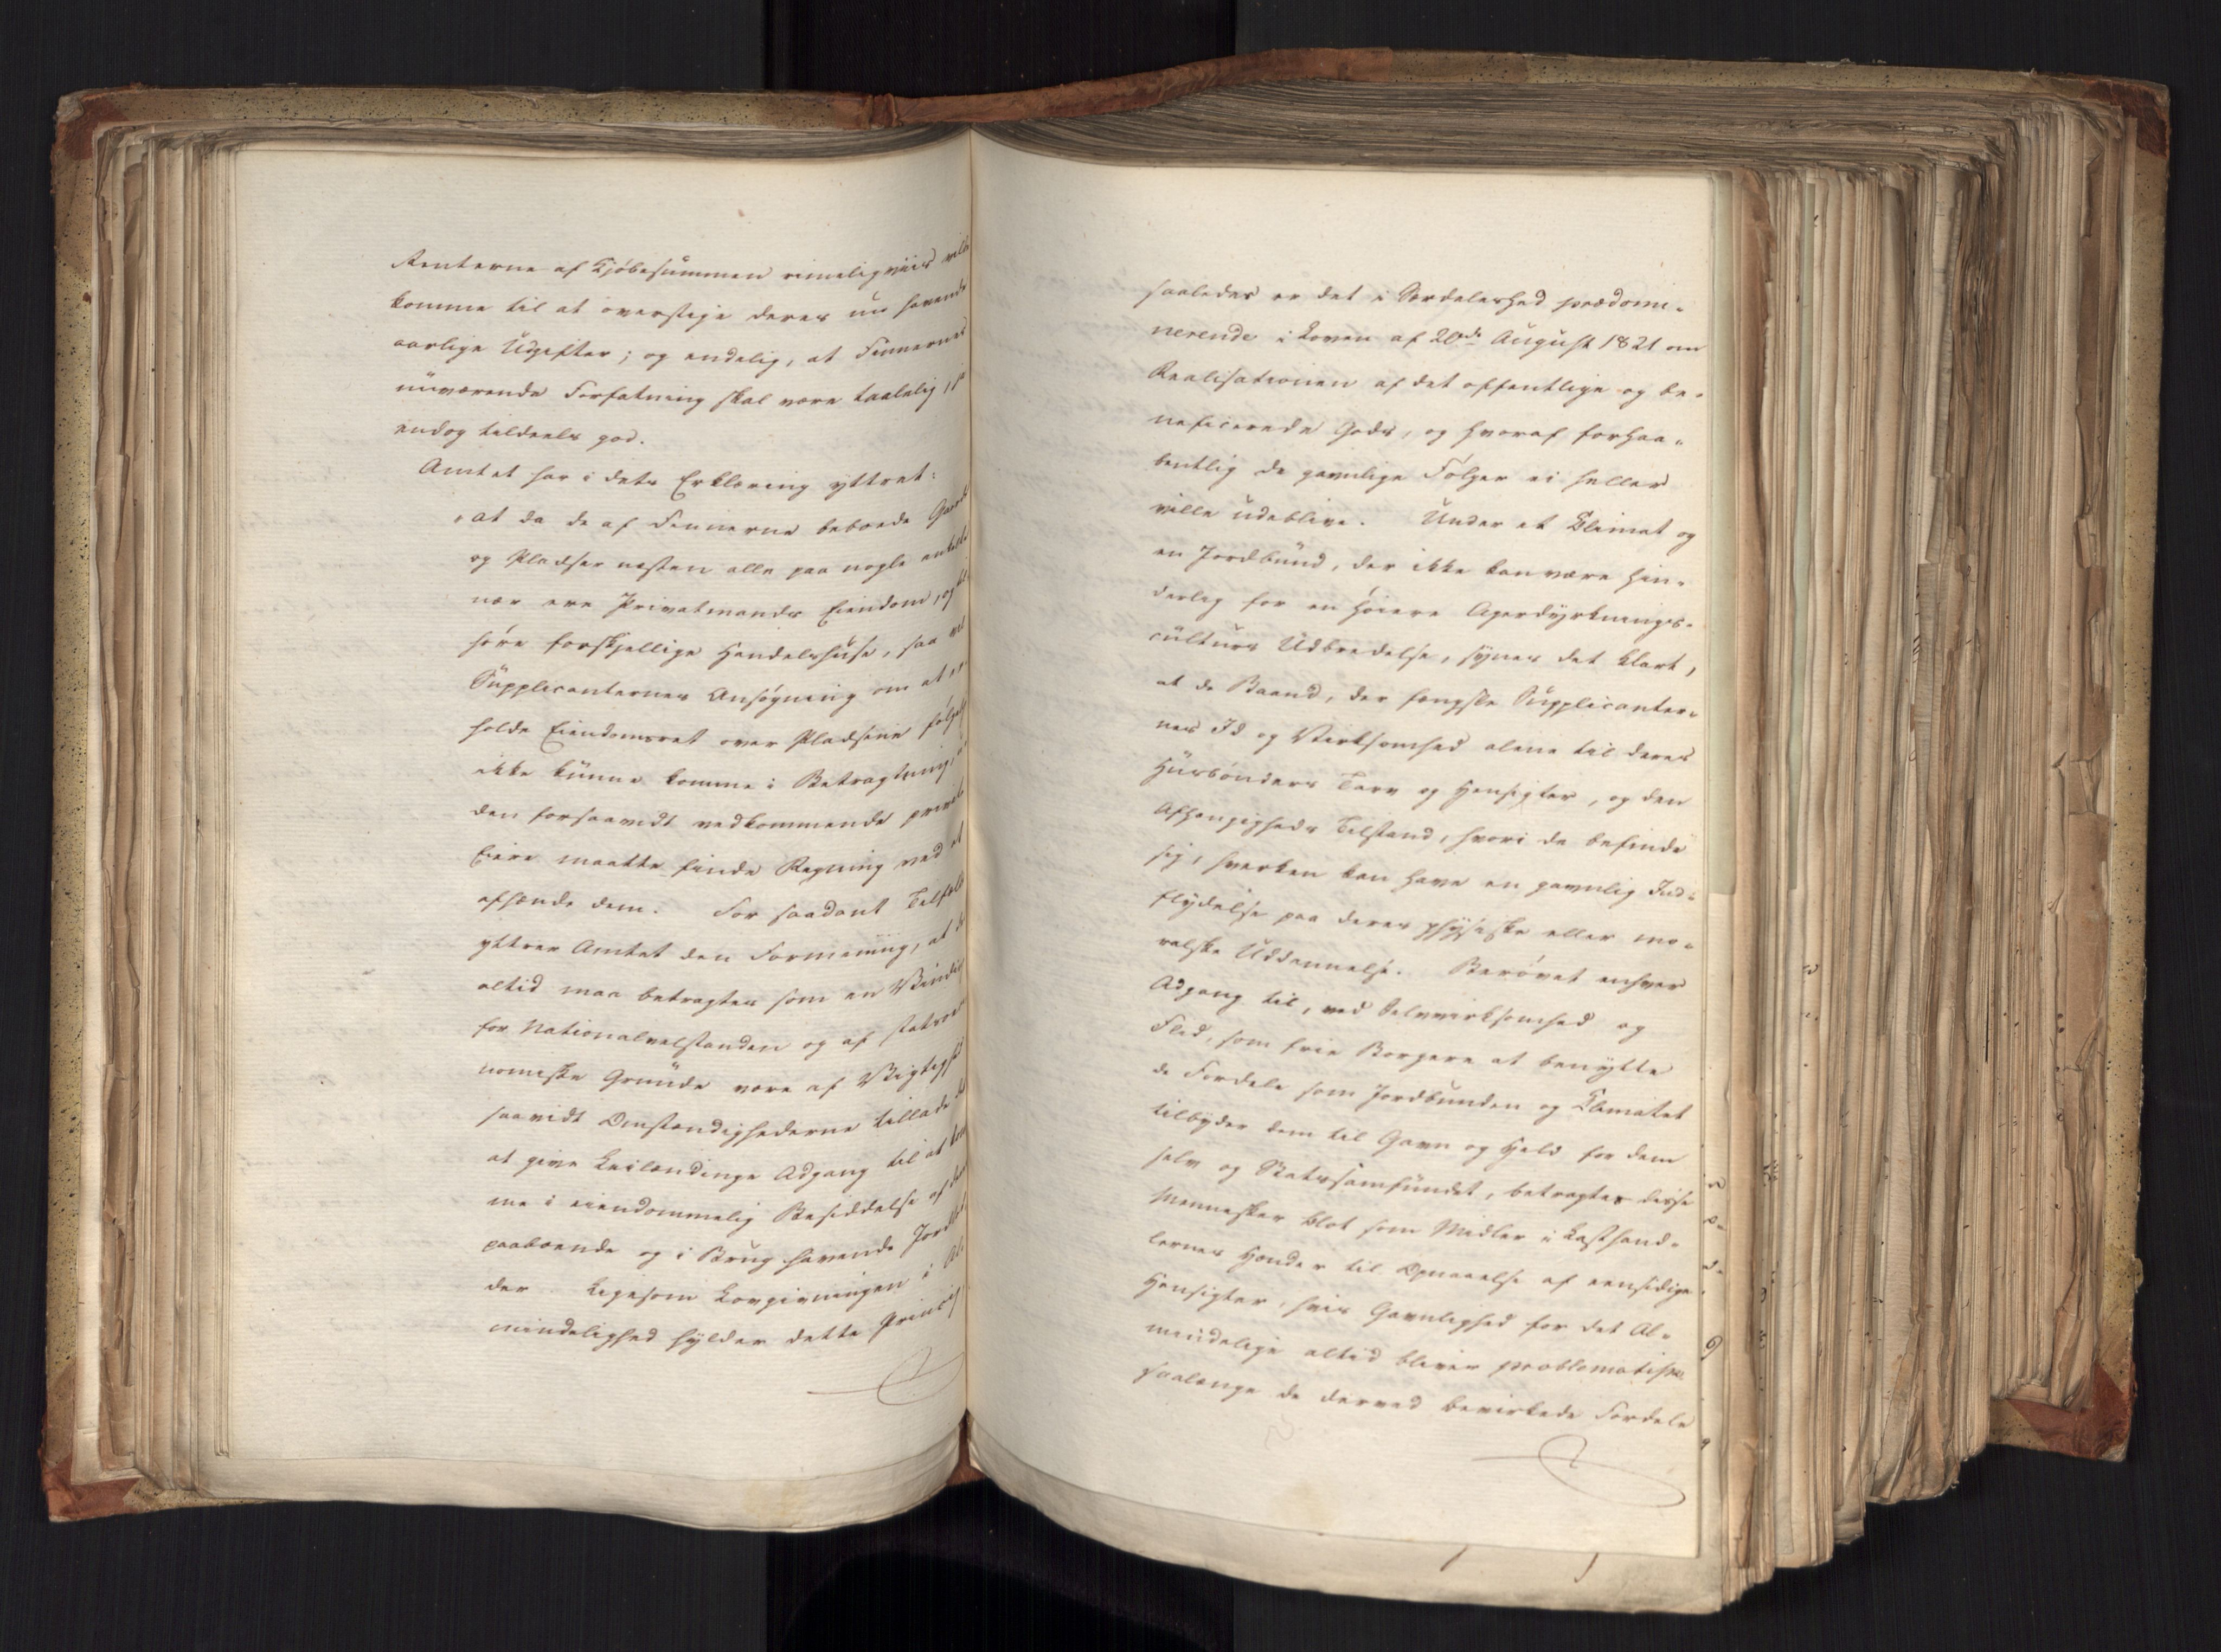 Renterne af Kjöbesummen rimeligviis vilde
komme til at overstige deres nu havende
aarlige Udgifter; og endelig, at Finnernes
nuværende Forfatning skal være taalelig, ja
endog tildeels god.
Amtet har i dets Erklæring yttret:
"at da de af Finnerne beboede Gaarde
og Pladser næsten alle paa nogle enkelte
nær ere Privatmands Eiendom, og til-
höre forskjellige Handelshuse, saa vil
Supplicanternes Ansögning om at er-
holde Eiendomsret over Pladsene fölgelig
ikke kunne komme i Betragtning, u-
den forsaavidt vedkommende private
Eiere maatte finde Regning ved at
afhænde dem. For saadant Tilfælde
yttrer Amtet den Formening, at det
altid maa betragtes som en Vinding
for Nationalvelstanden og af statsoeco-
nomiske Grunde være af Vigtighed
saavidt Omstændighederne tillade det
at give Leilændinge Adgang til at kom-
me i eiendommelig Besiddelse af deres
paaboende og i Brug havende Jordlod-
der. Ligesom Lovgivningen i Al-
mindelighed hylder dette Princip
saaledes er det i Særdeleshed prædomi-
nerende i Loven af 20de August 1821 om
Realisationen af det offentlige og be-
neficerede Gods, og hvoraf forhaa-
bentlig de gavnlige Fölger ei heller
ville udeblive. Under et Climat og
en Jordbund, der ikke kan være hin-
derlig for en höiere Agerdyrknings-
culturs Udbredelse, synes det klart,
at de Baand, der fængsle Supplicanter-
nes Id og Virksomhed alene til deres
Husbönders Tarv og Hensigter, og den
Afhængigheds Tilstand, hvori de befinde
sig, hverken kan have en gavnlig Ind-
flydelse paa deres physiske eller mo-
ralske Uddannelse. Berövet enhver
Adgang til, ved Selvvirksomhed og
Flid, som frie Borgere at benytte
de Fordele som Jordbunden og Climatet
tilbyder dem til Gavn og Held for dem
selv og Statssamfundet, betragtes disse
Mennesker blot som Midler i Kasthand-
lernes Hænder til Opnaaelse af eensidige
Hensigter, hvis Gavnlighed for det Al-
mindelige altid bliver problematisk
saalænge de derved bevirkede Fordele